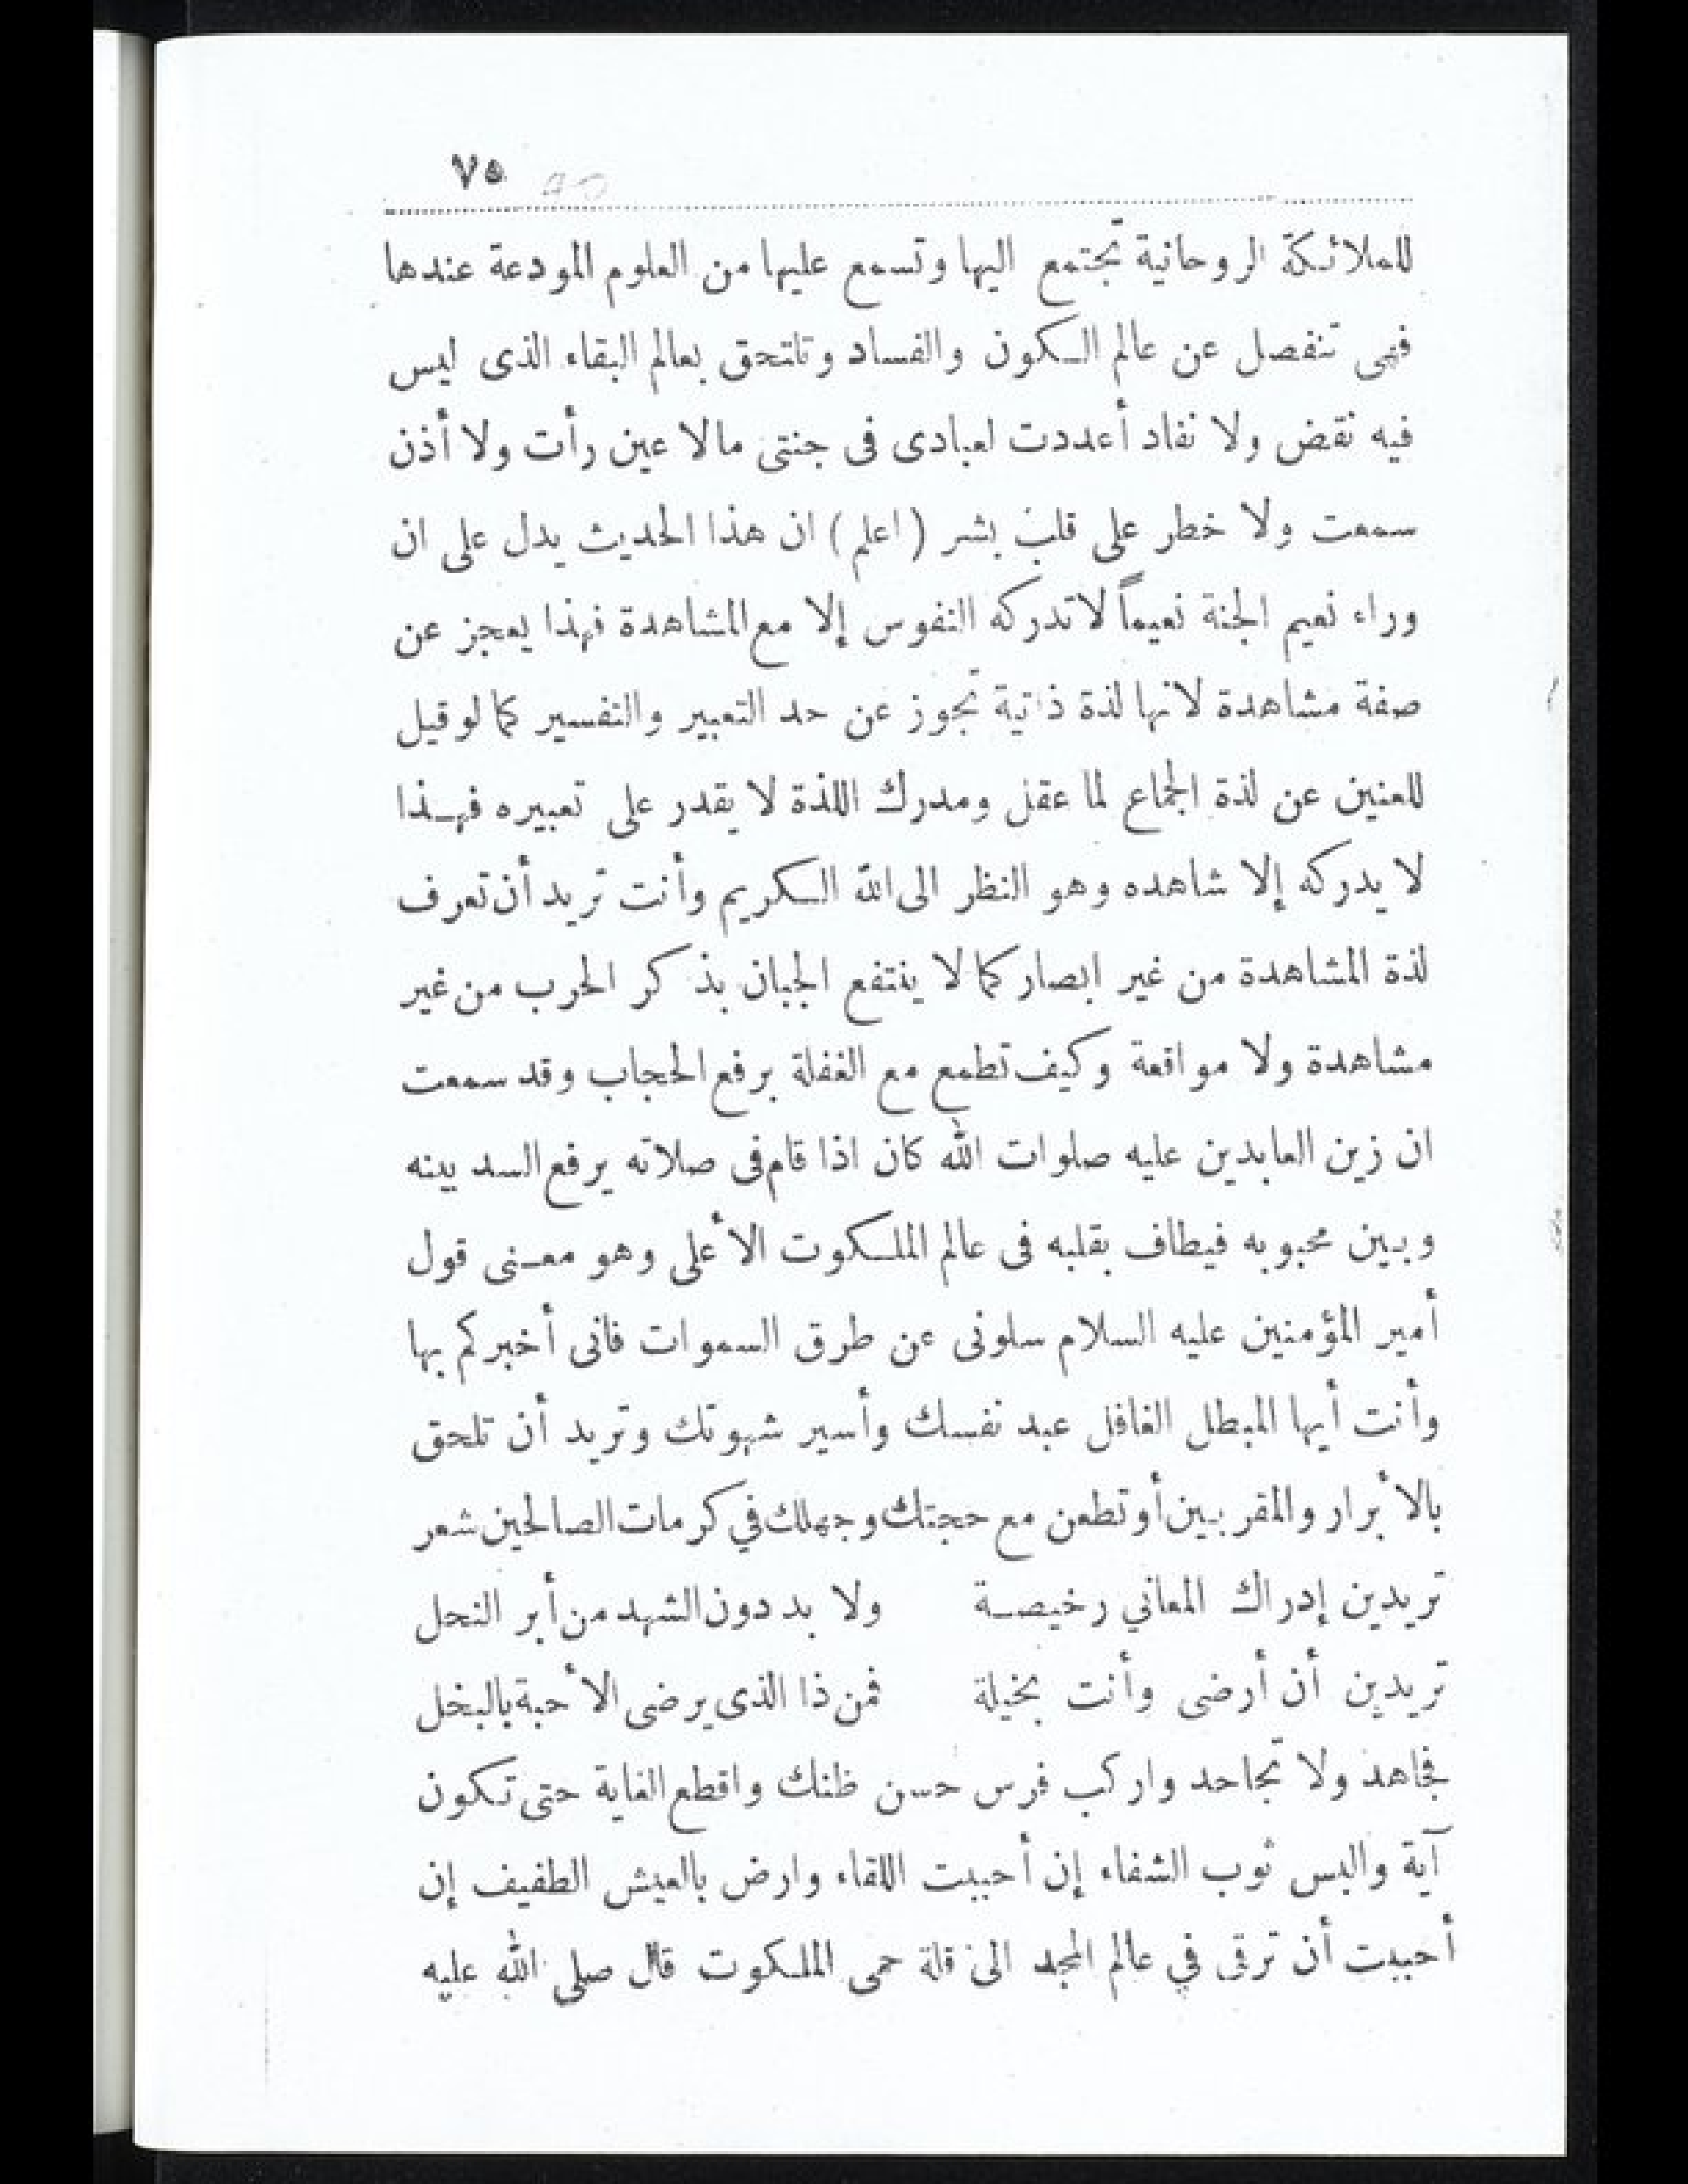 ٧٥
للملائكة الروحانية تجتمع اليها وتسمع عليها من العلوم المودعة عندها
فهى تنفصل عن عالم الكون والفساد وتلتحق بعالم البقاء الذى ليس
فيه نقض ولا نفاد أعددت لعبادى فى جنتى مالا عين رأت ولا أذن
سمعت ولا خطر على قلب بشر ( اعلم ) ان هذا الحديث يدل على ان
وراء نعيم الجنة نعيماً لا تدركه النفوس إلا مع المشاهدة فهذا يعجز عن
صفة مشاهدة لانها لذة ذاتية تجوز عن حد التعبير والتفسير كما لو قيل
للعنين عن لذة الجماع لما عقل ومدرك اللذة لا يقدر على تعبيره فهذا
لا يدركه إلا شاهده وهو النظر الى الله الكريم وأنت تريد أن تعرف
لذة المشاهدة من غير ابصار كما لا ينتفع الجبان بذكر الحرب من غير
مشاهدة ولا مواقعة وكيف تطمع مع الغفلة برفع الحجاب وقد سمعت
ان زين العابدين عليه صلوات الله كان اذا قام فى صلاته يرفع السد بينه
وبين محبوبه فيطاف بقلبه فى عالم الملكوت الأعلى وهو معنى قول
أمير المؤمنين عليه السلام سلونى عن طرق السموات فانى أخبركم بها
وأنت أيها المبطل الغافل عبد نفسك وأسير شهوتك وتريد أن تلحق
بالأبرار والمقربين أو تطعن مع حجتك وجهلك في كرمات الصالحين شعر
تريدين إدراك المعاني رخيصة ولا بد دون الشهد من أبر النحل
تريدين أن أرضى وأنت بخيلة فمن ذا الذى يرضى الأحبة بالبخل
فجاهد ولا تجاحد واركب فرس حسن ظنك واقطع الغاية حتى تكون
آية والبس ثوب الشفاء إن أحببت اللقاء وارض بالعيش الطفيف إن
أحببت أن ترقى في عالم المجد الى قلة حمى الملكوت قال صلى الله عليه